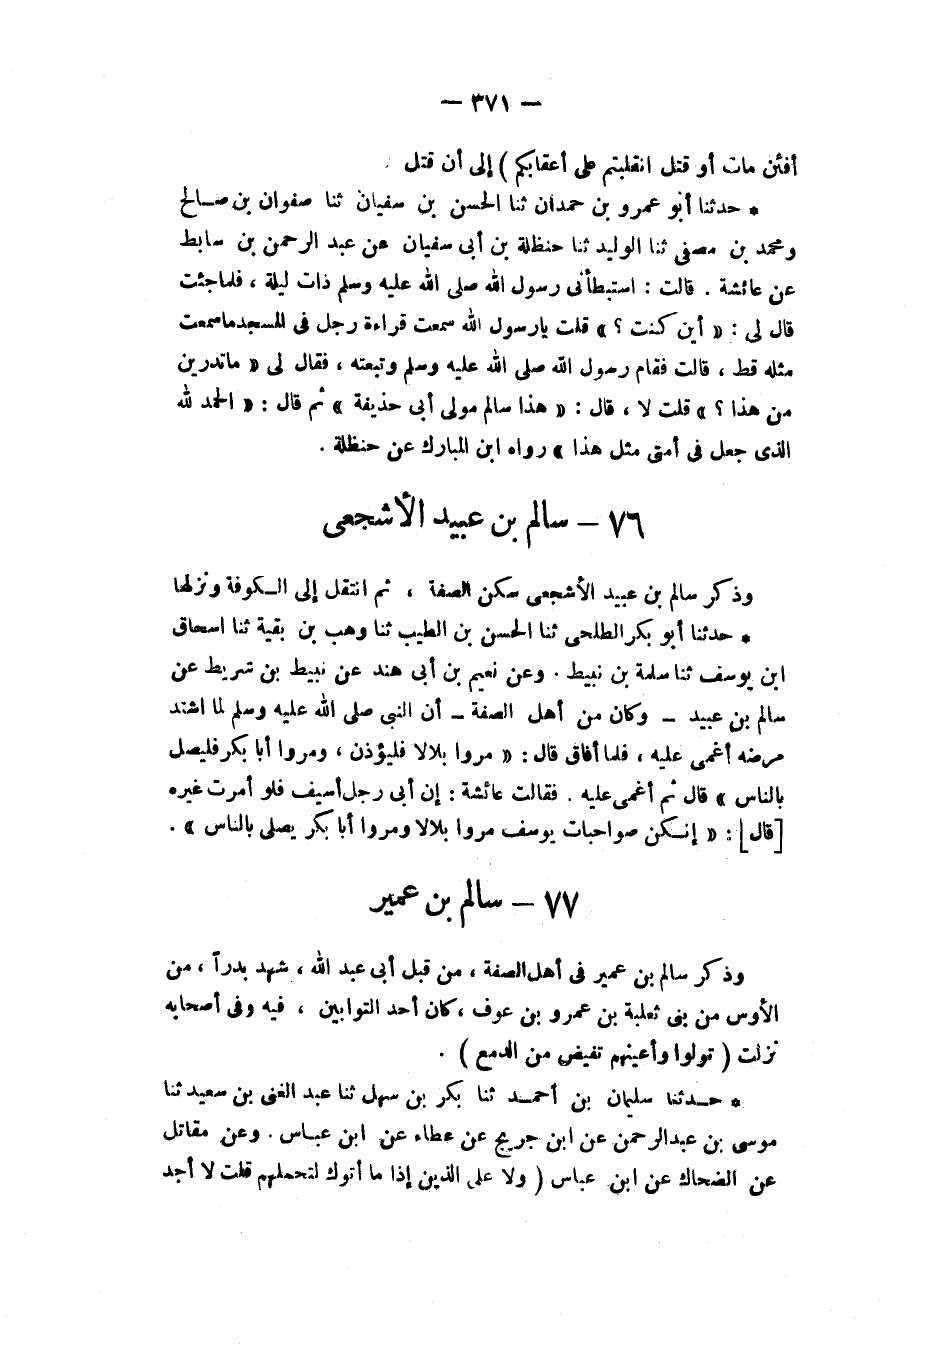 — ٣٧١ —
أفئن مات أو قتل انقلبتم على أعقابكم ) إلى أن قتل
* حدثنا أبو عمرو بن حمدان ثنا الحسن بن سفيان ثنا صفوان بن صـالح
ومحمد بن مصفى ثنا الوليد ثنا حنظلة بن أبى سفيان عن عبد الرحمن بن سابط
عن عائشة . قالت : استبطأنى رسول الله صلى الله عليه وسلم ذات ليلة ، فلما جئت
قال لى : « أين كنت ؟ » قلت يارسول الله سمعت قراءة رجل فى المسجد ماسمعت
مثله قط ، قالت فقام رسول الله صلى الله عليه وسلم وتبعته ، فقال لى « ماتدرين
من هذا ؟ » قلت لا ، قال : « هذا سالم مولى أبى حذيفة » ثم قال : « الحمد لله
الذى جعل فى أمتى مثل هذا » رواه ابن المبارك عن حنظلة .
٧٦ – سالم بن عبيد الأشجعى
وذكر سالم بن عبيد الأشجعى سكن الصفة ، ثم انتقل إلى الـكوفة ونزلها
* حدثنا أبو بكر الطلحى ثنا الحسن بن الطيب ثنا وهب بن بقية ثنا اسحاق
ابن يوسف ثنا سلمة بن نبيط . وعن نعيم بن أبى هند عن نبيط بن شريط عن
سالم بن عبيد – وكان من أهل الصفة – أن النبى صلى الله عليه وسلم لما اشتد
مرضه أغمى عليه ، فلما أفاق قال : « مروا بلالا فليؤذن ، ومروا أبا بكر فليصل
بالناس » قال ثم أغمى عليه . فقالت عائشة : إن أبى رجل أسيف فلو أمرت غيره
[قال] : « إنـكن صواحبات يوسف مروا بلالا ومروا أبا بكر يصلى بالناس » .
٧٧ – سالم بن عمير
وذكر سالم بن عمير فى أهل الصفة ، من قبل أبى عبد الله ، شهد بدرآ ، من
الأوس من بنى ثعلبة بن عمرو بن عوف ، كان أحد التوابين ، فيه وفى أصحابه
نزلت ( تولوا وأعينهم تفيض من الدمع ) .
* حـدثنا سليمان بن أحمـد ثنا بكر بن سهل ثنا عبد الغنى بن سعيد ثنا
موسى بن عبد الرحمن عن ابن جريج عن عطاء عن ابن عبـاس . وعن مقاتل
عن الضحاك عن ابن عباس ( ولا على الذين إذا ما أتوك لتحملهم قلت لا أجد